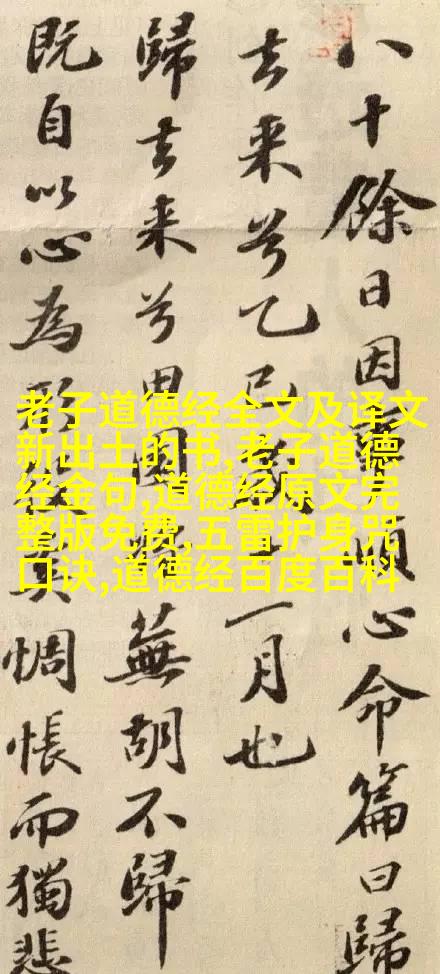 八十餘日因事順心命篇曰歸
去来兮乙巳歲十一月也
歸去来兮田園將蕪胡不歸
既自以心為形役奚惆悵而獨悲
老子道德经全文及译文
新出土的书,老子道德
经金句,道德经原文完
整版免费,五雷护身咒
口诀,道德经百度百科